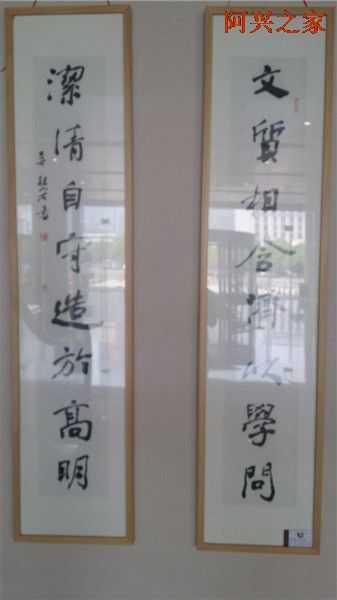 阿兴之家
文質相合斟以學問
潔清自守造於高明